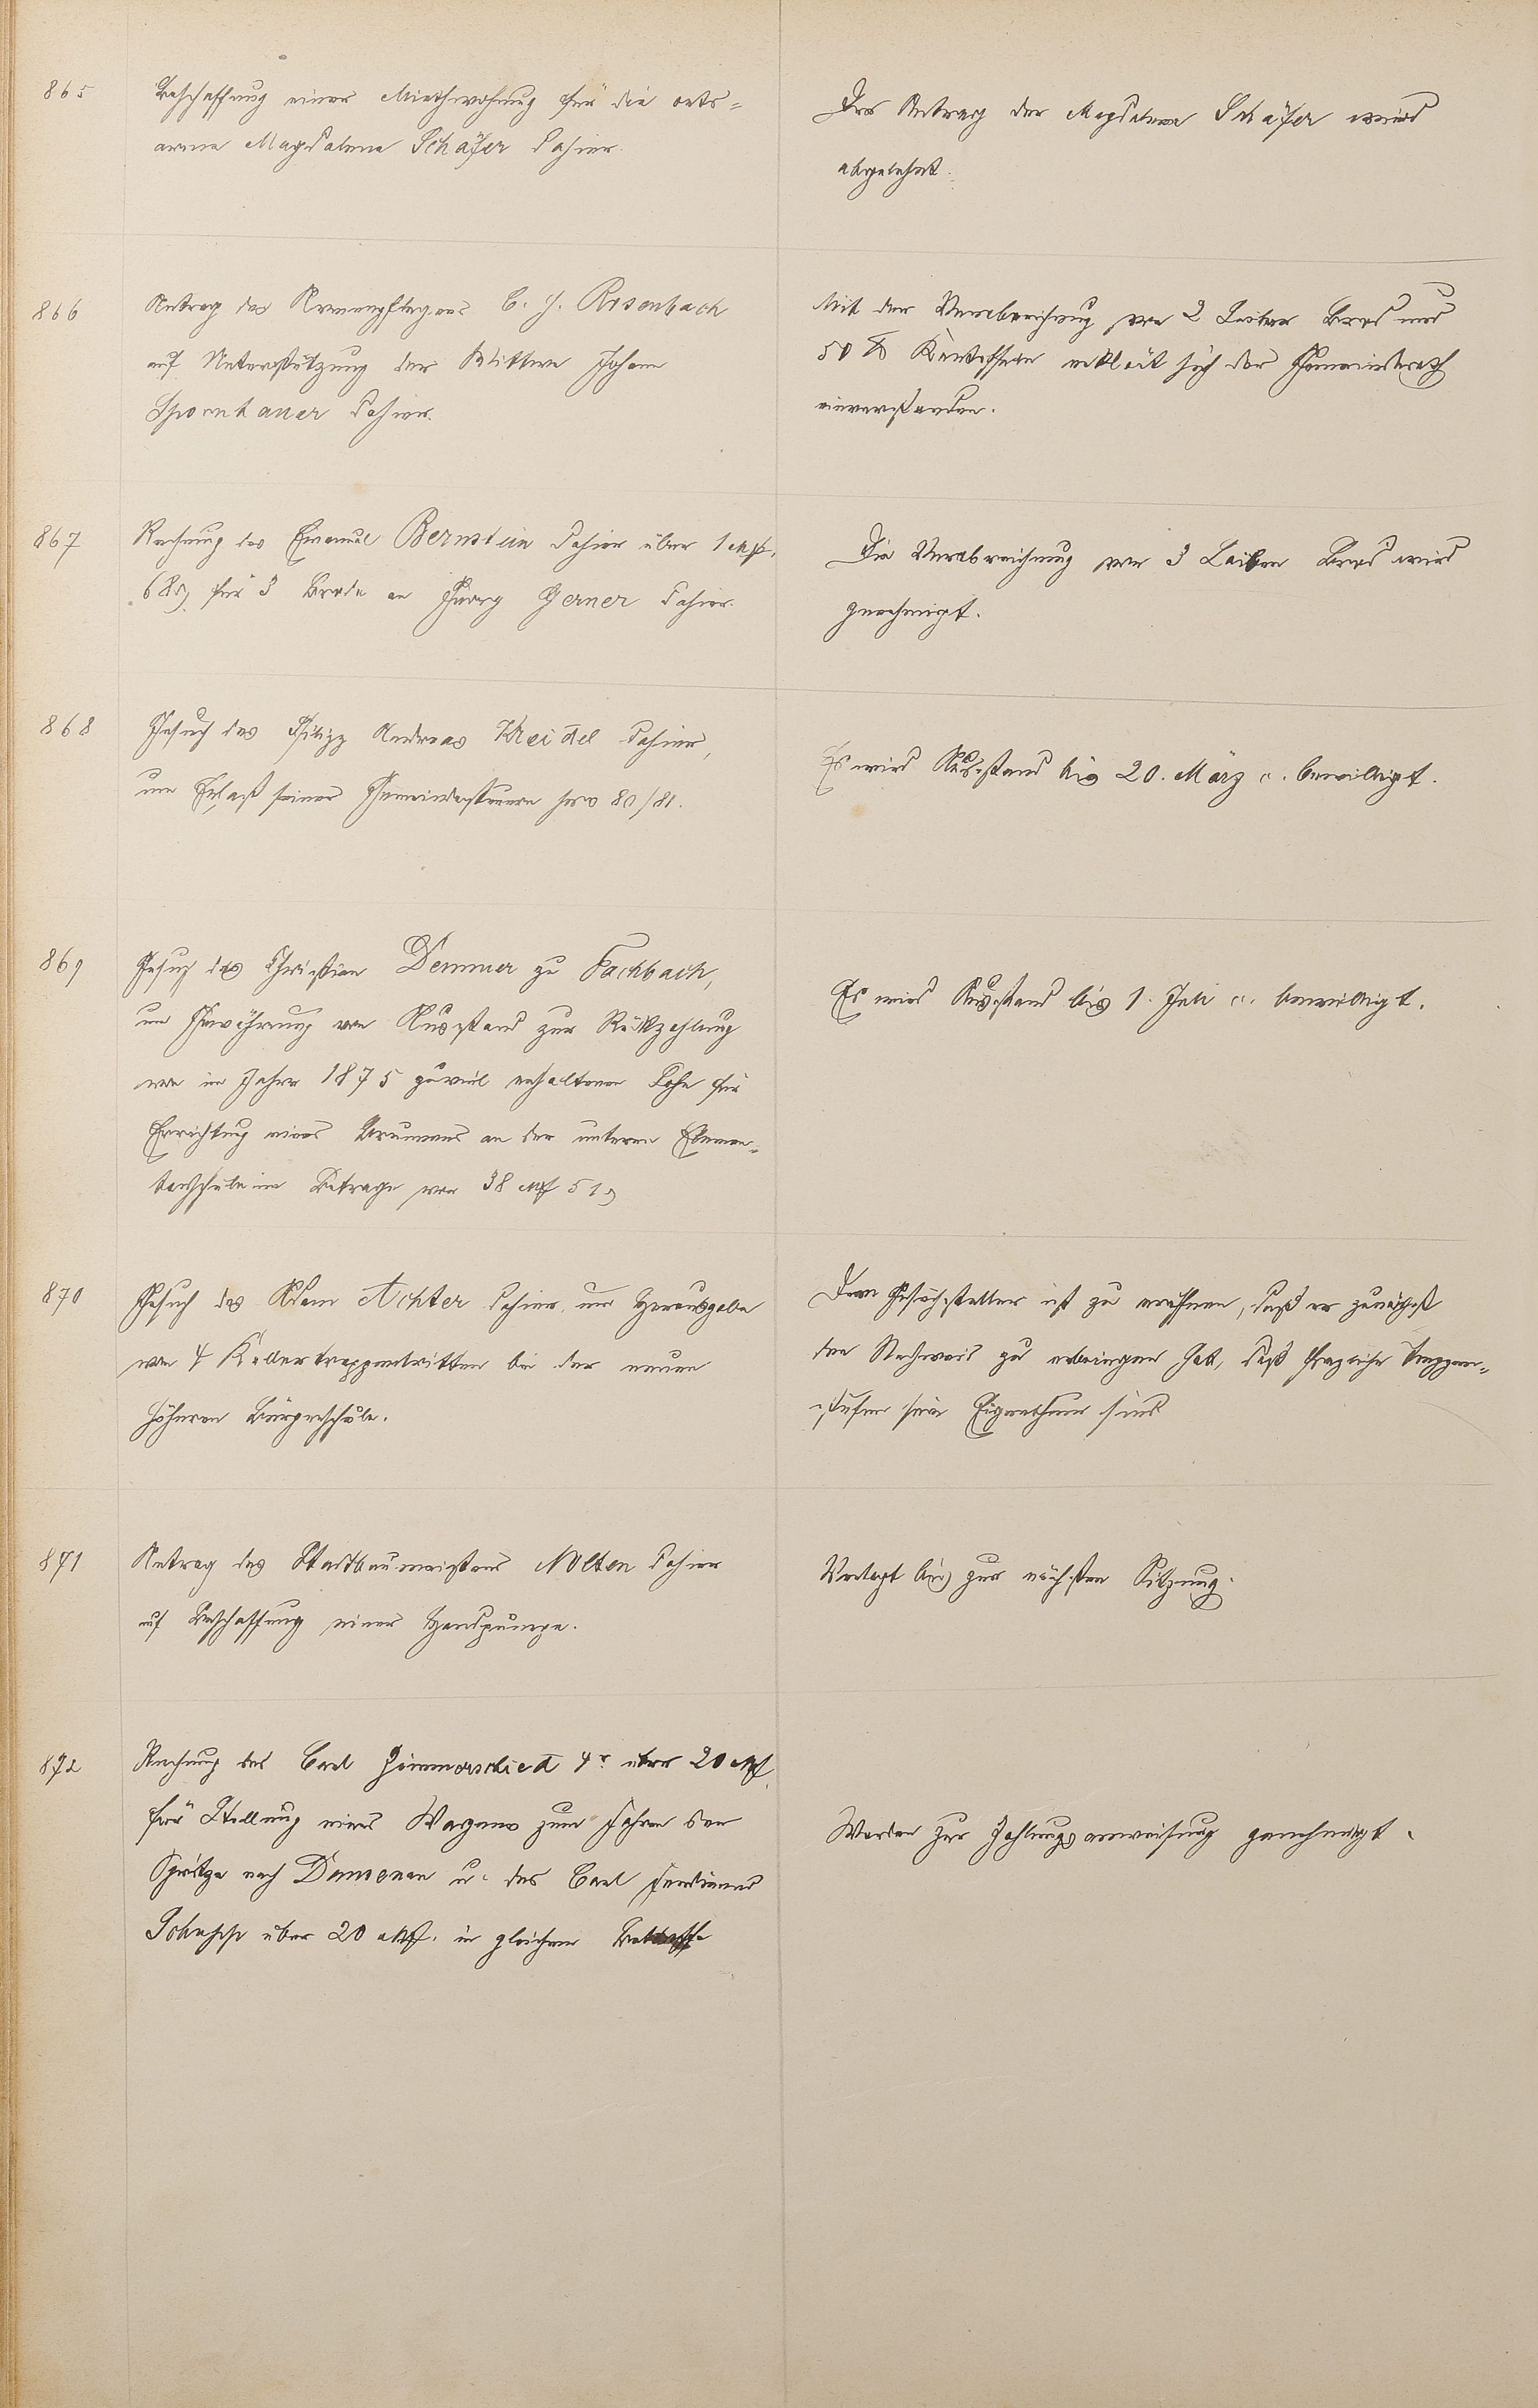 865
Beschaffung einer Miethwohnung für die orts-
arme Magdalena Schäfer dahier.
Der Antrag der Magdalena Schäfer wird
abgelehnt.
866
Antrag des Armenpflegers C. J. Rosenbach
auf Unterstützung der Wittwe Johann
Spornhauer dahier.
Mit der Verabreichung von 2 Laiben Brod und
50 ℔ Kartoffeln erklärt sich der Gemeinderath
einverstanden.
867
Rechnung des Emanuel Bernstein dahier über 1 Mk.
68 ₰ für 3 Brode an Georg Gerner dahier.
Die Verabreichung von 3 Laiben Brod wird
genehmigt.
868
Gesuch des Philipp Andreas Kreidel dahier,
um Erlaß seiner Gemeindesteuern pro 80/81.
Es wird Ausstand bis 20. März c. bewilligt.
869
Gesuch des Christian Demmer zu Fachbach,
um Gewährung von Ausstand zur Rückzahlung
von im Jahre 1875 zuviel erhaltenen Lohn für
Errichtung eines Brunnens an der unteren Elemen-
tarschule im Betrage von 38 Mk 51 ₰
Es wird Ausstand bis 1. Juli c. bewilligt.
870
Gesuch des Adam Achter dahier, um Herausgabe
von 4 Kellertreppentritten bei der neuen
höheren Bürgerschule.
Dem Gesuchsteller ist zu eröffnen, daß er zunächst
den Nachweis zu erbringen hat, daß fragliche Treppen-
stufen sein Eigenthum sind
871
Antrag des Stadtbaumeisters Nolten dahier
auf Beschaffung einer Handpumpe.
Vertagt bis zur nächsten Sitzung.
872
Rechnung des Carl Zimmerschied 4r über 20 Mk.
für Stellung eines Wagens zum Fahren der
Spritze nach Dausenau u. des Carl Ferdinand
Schupp über 20 Mk. in gleichem Betreff
Werden zur Zahlungsanweisung genehmigt.